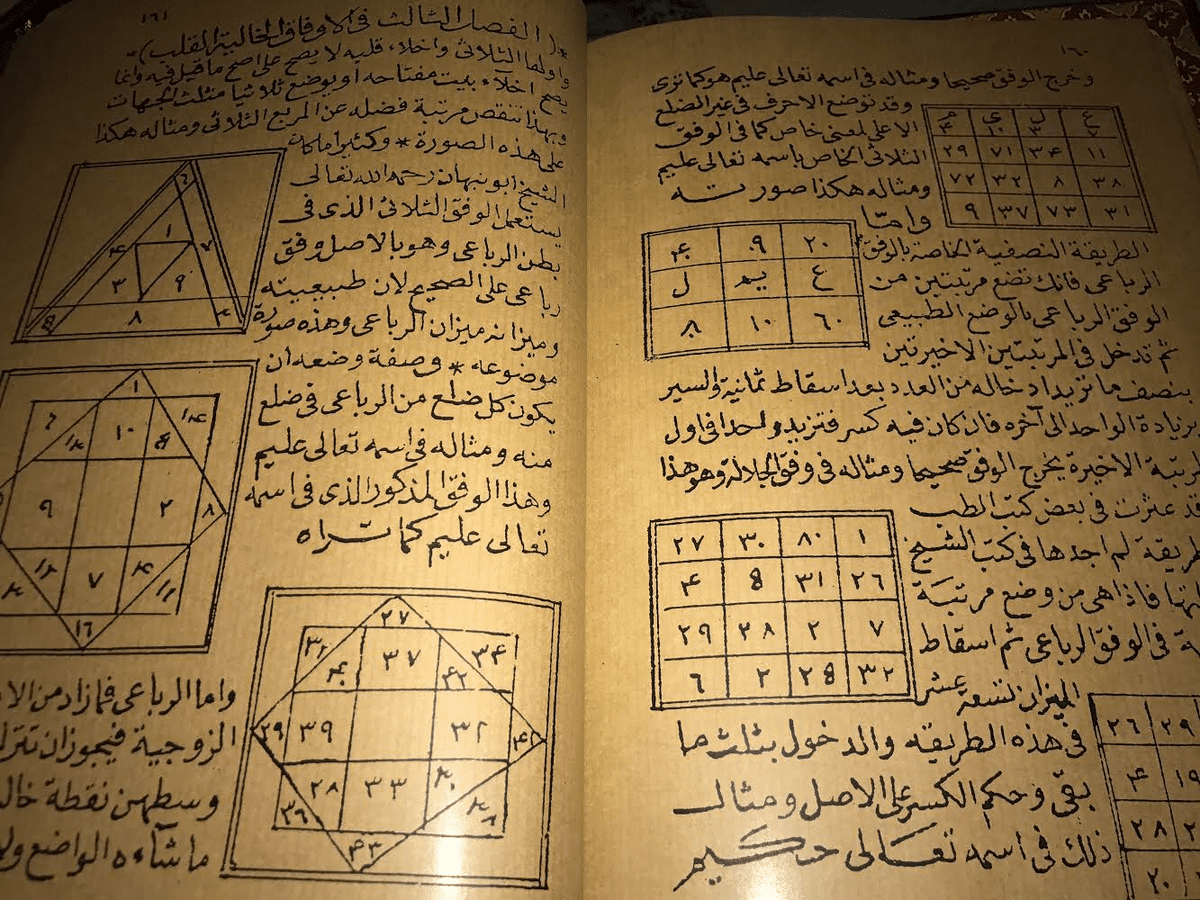 ١٦٠
وخرج الوفق صحيحا ومثاله في اسمه تعالى عليم هو كما ترى
ع ل ى م
٧٠ ٣٠ ١٠ ٤٠
١١ ٣٤ ٧١ ٢٩
٣٨ ٨ ٣٢ ٧٢
٣١ ٧٣ ٣٧ ٩
وقد توضع الاحرف في غير الضلع
الا على لمعنى خاص كما في الوفق
الثلاثي الخاص باسمه تعالى عليم
ومثاله هكذا صورته
٢٠ ٩ ٤٠
ع يم ل
٦٠ ١٠ ٨
وامّا
الطريقة النصفية الخاصة بالوفق
الرباعى فانك تضع مرتبتين من
الوفق الرباعى بالوضع الطبيعى
ثم تدخل في المرتبتين الاخيرتين
بنصف ما تريد ادخاله من العدد بعد اسقاط ثمانية والسير
بزيادة الواحد الى آخره فان كان فيه كسر فتزيد واحدا في اول
الاخيرة يخرج الوفق صحيحا ومثاله في وفق الجلالة وهو هذا
١ ٨٠ ٣٠ ٢٧
٢٦ ٣١
٧ ٢ ٢٨ ٢٩
٣٢ ٢ ٦
عثرت في بعض كتب الطب
لم اجدها في كتب الشيخ
فاذا هى من وضع مرتبة
في الوفق الرباعى ثم اسقاط
الميزان تسعة عشر
في هذه الطريقه والدخول بثلث ما
بقى وحكم الكسر على الاصل ومثال
ذلك في اسمه تعالى حكيم
٢٩ ٢٦
١٩ ٤
٢٨
٢٠
١٦١
*(الفصل الثالث في الاوفاق الخالية القلب)*
واولها الثلاثى واخلاء قلبه لا يصح على اصح ما قيل فيه وانما
يصح اخلاء بيت مفتاحه او يوضع ثلاثيا مثلث الجهات
وبهذا تنقص مرتبة فضله عن المربع الثلاثى ومثاله هكذا
على هذه الصورة * وكثيرا ما كان
الشيخ ابو نبهان رحمه الله تعالى
يستعمل الوفق الثلاثى الذى في
بطن الرباعى وهو بالاصل وفق
رباعى على الصحيح لان طبيعيته
وميزانه ميزان الرباعى وهذه صورة
موضوعه * وصفة وضعه ان
يكون كل ضلع من الرباعى في ضلع
منه ومثاله في اسمه تعالى عليم
وهذا الوفق المذكور الذى في اسمه
تعالى عليم كما تراه
١ ٧
٣ ٩
٨
١
١٠
٩ ٢ ٨
٧
١٦
٢٧
٣٧ ٣٤
٤٢
٢٩ ٣٩ ٣٢
٢٨ ٣٣
٣٦
واما الرباعى فما زاد من
الزوجية فيجوز ان
وسطهن نقطة
ما شاءه الواضع